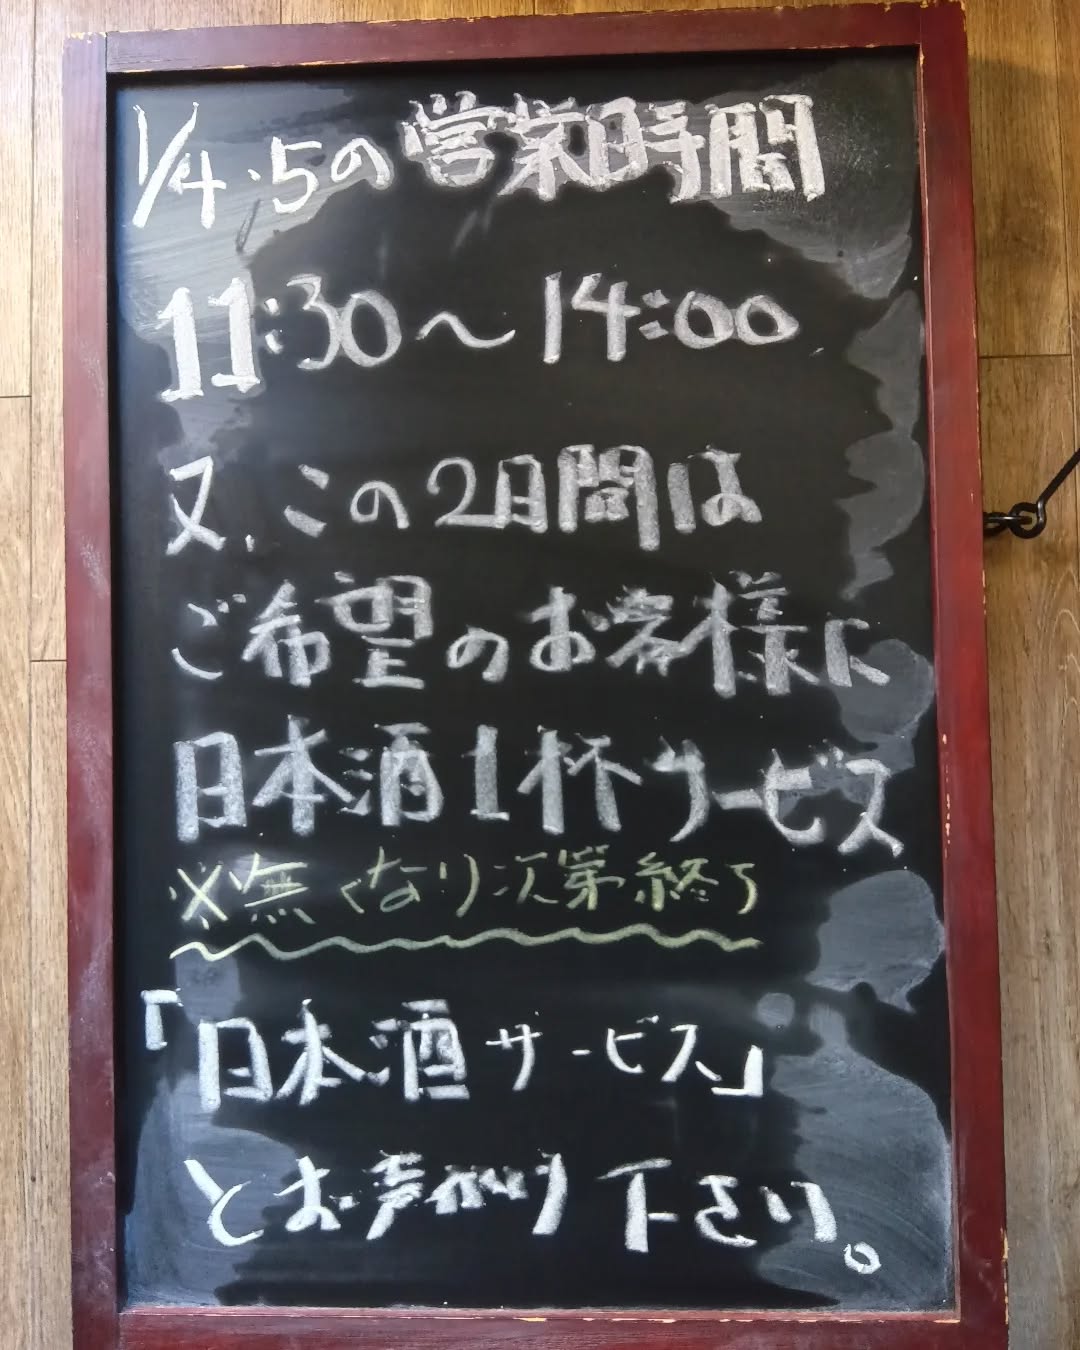 1/4・5の営業時間
11:30～14:00
又、この2日間は
ご希望のお客様に
日本酒1杯サービス
※無くなり次第終了
「日本酒サービス」
とお声がけ下さい。